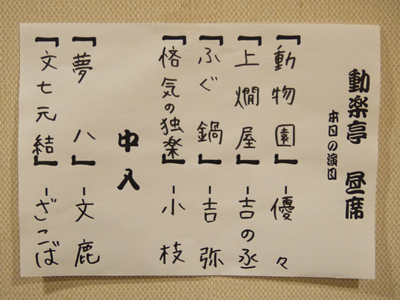 動楽亭 昼席
本日の演目
「動物園」-優々
「上燗屋」-吉の丞
「ふぐ鍋」-吉弥
「悋気の独楽」-小枝
中入
「夢八」-文鹿
「文七元結」-ざこば